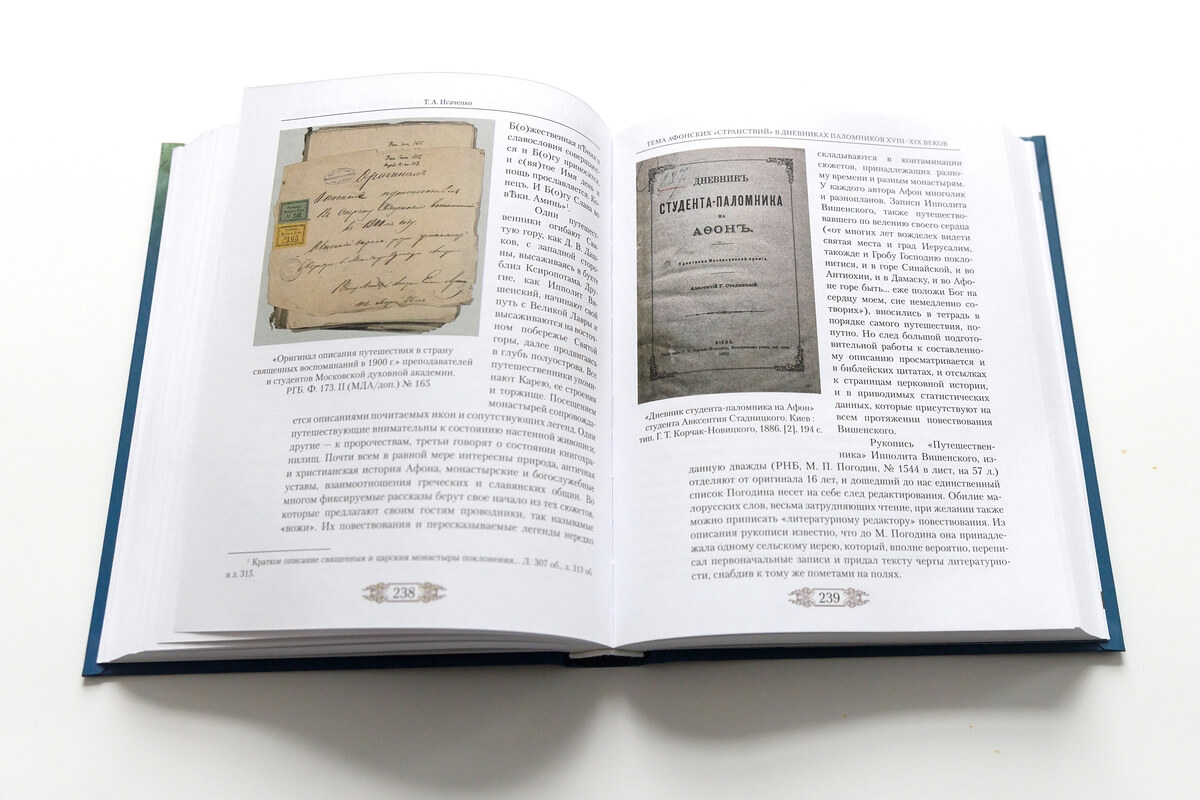 Т. А. Исаченко
Оригиналъ
№ 165
«Оригинал описания путешествия в страну
священных воспоминаний в 1900 г.» преподавателей
и студентов Московской духовной академии.
РГБ. Ф. 173. II (МДА/доп.) № 165
Б(о)жественная
славословия соверша
ся и Б(о)гу приносятся
и с(вя)тое Имя день и
нощь прославляется Ко
нецъ. И Б(о)гу Слава во
вѣки. Аминь»¹.
Одни путешест-
венники огибают Свя-
тую гору, как Д. В. Даш-
ков, с западной сторо-
ны, высаживаясь в бухте
близ Ксиропотама. Дру-
гие, как Ипполит Ви-
шенский, начинают свой
путь с Великой Лавры и
высаживаются на восточ-
ном побережье Святой
горы, далее продвигаясь
в глубь полуострова. Все
путешественники упоми-
нают Карею, ее строения
и торжище. Посещением
монастырей сопровожда-
ется описаниями почитаемых икон и сопутствующих легенд. Одни
путешествующие внимательны к состоянию настенной живописи,
другие — к пророчествам, третьи говорят о состоянии книгохра-
нилищ. Почти всем в равной мере интересны природа, античная
и христианская история Афона, монастырские и богослужебные
уставы, взаимоотношения греческих и славянских общин. Во
многом фиксируемые рассказы берут свое начало из тех сюжетов,
которые предлагают своим гостям проводники, так называемые
«вожи». Их повествования и пересказываемые легенды нередко
¹ Краткое описание священныя и царския монастыры поклонения... Л. 307 об., л. 313 об.
и л. 315.
238
ТЕМА АФОНСКИХ «СТРАНСТВИЙ» В ДНЕВНИКАХ ПАЛОМНИКОВ XVIII–XIX ВЕКОВ
ДНЕВНИКЪ
СТУДЕНТА-ПАЛОМНИКА
НА
АѲОНЪ.
Авксентій Г. Стадницкій.
КІЕВЪ.
«Дневник студента-паломника на Афон»
студента Авксентия Стадницкого. Киев :
тип. Г. Т. Корчак-Новицкого, 1886. [2], 194 с.
складываются в контаминации
сюжетов, принадлежащих разно-
му времени и разным монастырям.
У каждого автора Афон многолик
и разнопланов. Записи Ипполита
Вишенского, также путешество-
вавшего по велению своего сердца
(«от многих лет вожделех видети
святая места и град Иерусалим,
такожде и Гробу Господню покло-
нитися, и в горе Синайской, и во
Антиохии, и в Дамаску, и во Афо-
не горе быть... еже положи Бог на
сердцу моем, сие немедленно со-
творих»), вносились в тетрадь в
порядке самого путешествия, по-
путно. Но след большой подгото-
вительной работы к составленно-
му описанию просматривается и
в библейских цитатах, и отсылках
к страницам церковной истории,
и в приводимых статистических
данных, которые присутствуют на
всем протяжении повествования
Вишенского.
Рукопись «Путешествен-
ника» Ипполита Вишенского, из-
данную дважды (РНБ, М. П. Погодин, № 1544 в лист, на 57 л.)
отделяют от оригинала 16 лет, и дошедший до нас единственный
список Погодина несет на себе след редактирования. Обилие ма-
лорусских слов, весьма затрудняющих чтение, при желании также
можно приписать «литературному редактору» повествования. Из
описания рукописи известно, что до М. Погодина она принадле-
жала одному сельскому иерею, который, вполне вероятно, перепи-
сал первоначальные записи и придал тексту черты литературно-
сти, снабдив к тому же пометами на полях.
239